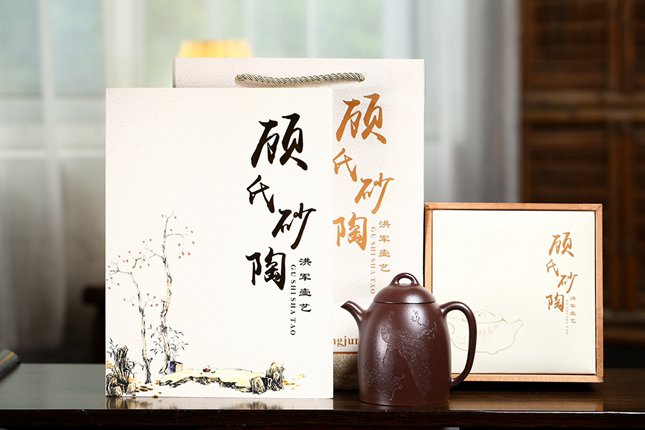 顾氏砂陶
洪军壶艺
GU SHI SHA TAO
顾氏砂陶
洪军壶艺
GU SHI SHA TAO
ngjun
顾氏砂陶
洪军壶艺